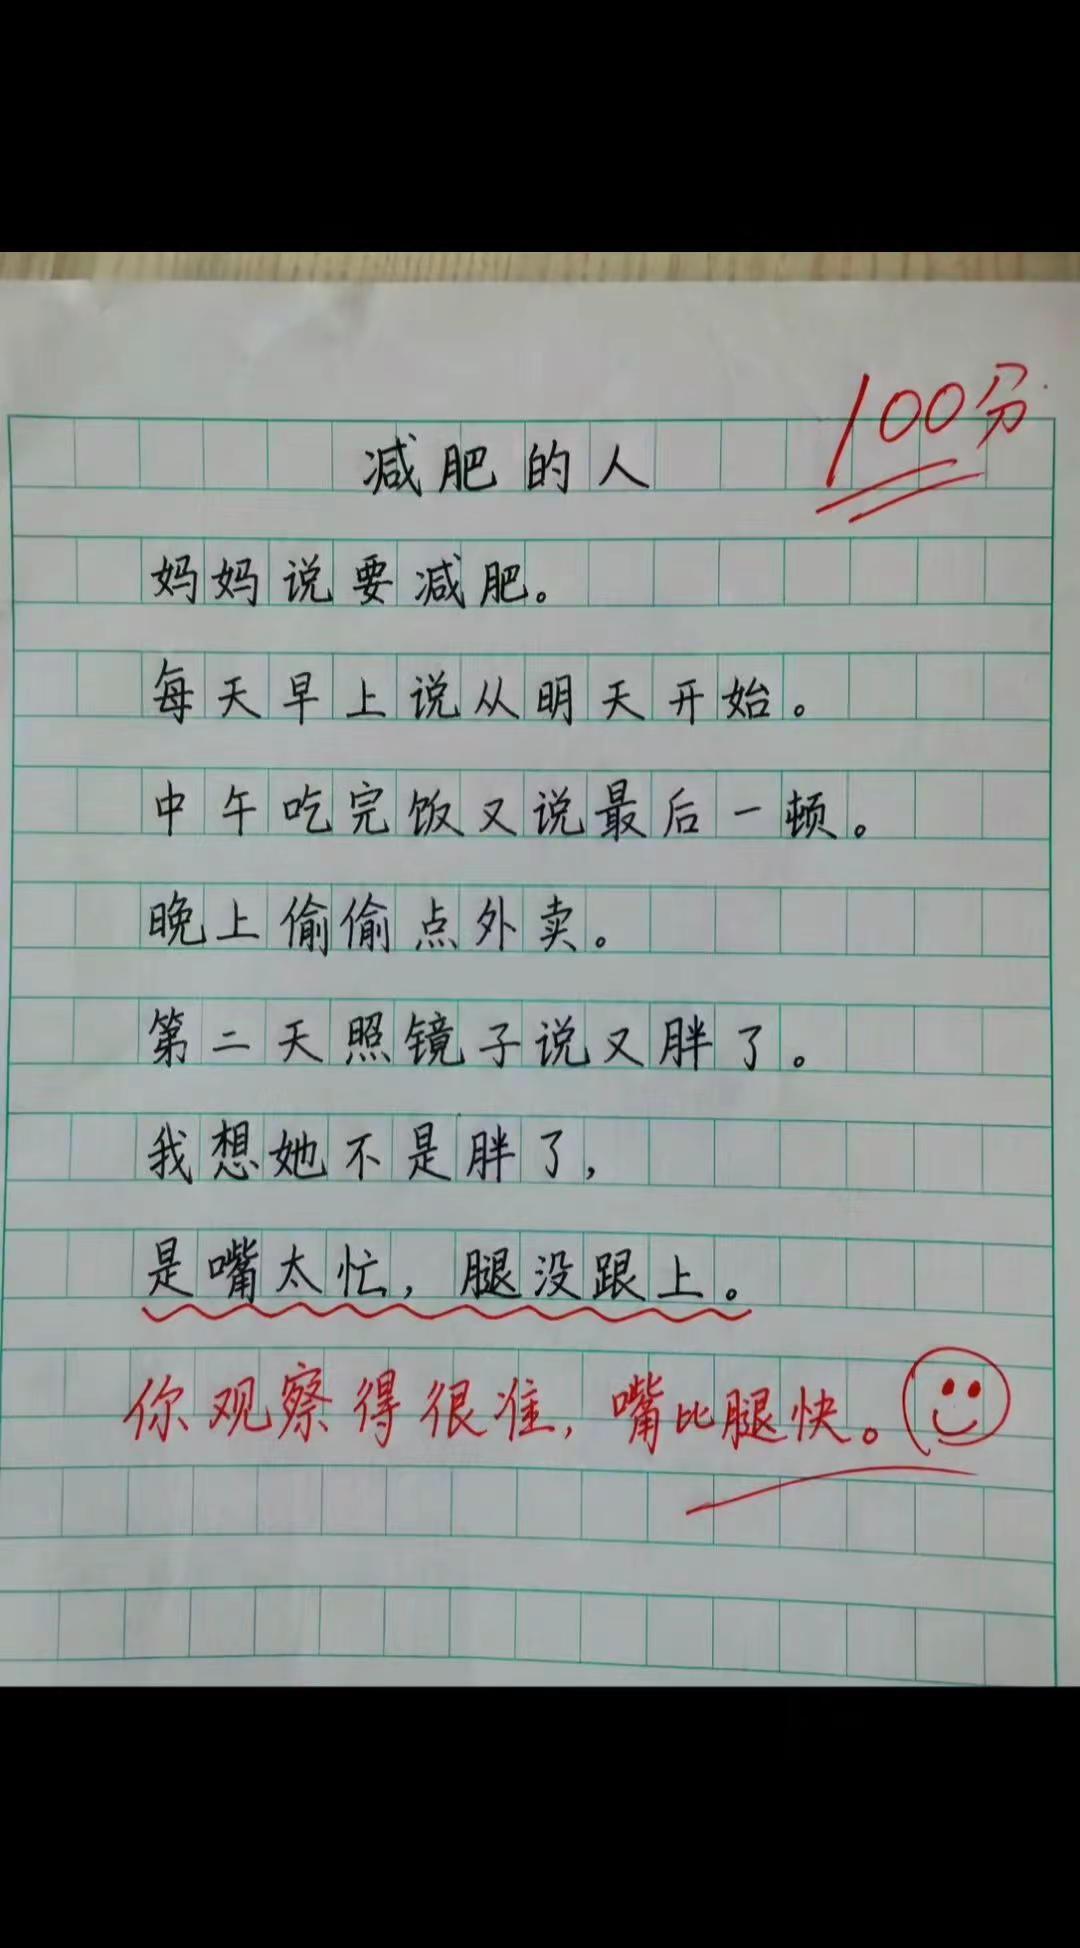 100分
减肥的人
妈妈说要减肥。
每天早上说从明天开始。
中午吃完饭又说最后一顿。
晚上偷偷点外卖。
第二天照镜子说又胖了。
我想她不是胖了,
是嘴太忙,腿没跟上。
你观察得很准,嘴比腿快。